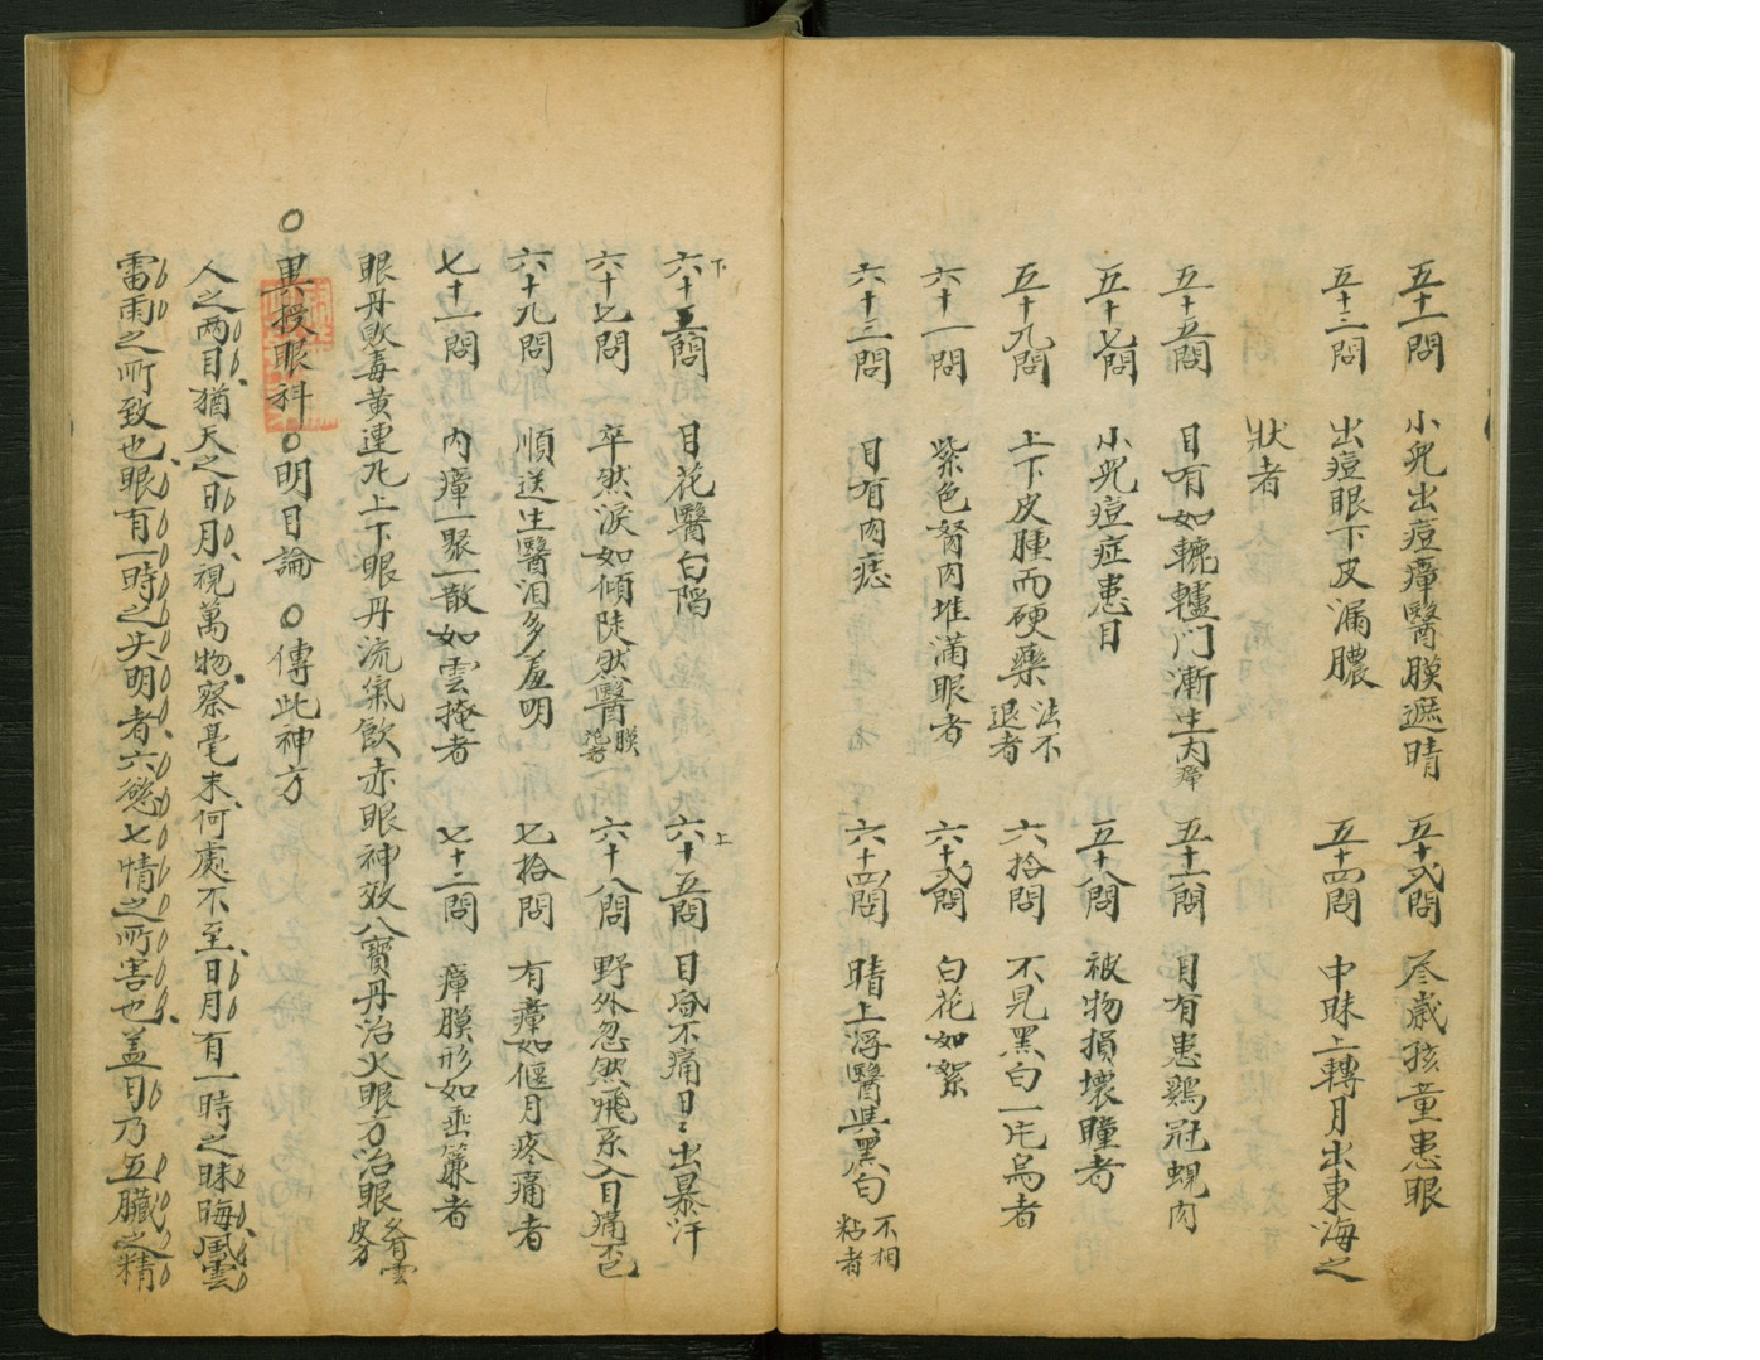 五十一問 小兒出痘瘴醫膜遮睛 五十弐問 叁歲孩童患眼
五十三問 出痘眼下皮漏膿 五十四問 中昧上轉月出東海之
狀者
五十五問 目有如轆轤門漸生肉瘴 五十六問 目有患鷄冠蜆肉
五十七問 小兒痘症患目 五十八問 被物損壞瞳者
五十九問 上下皮腫而硬藥法不退者 六拾問 不見黑白一片烏者
六十一問 紫色胬肉堆滿眼者 六十弐問 白花如絮
六十三問 目有肉痣 六十四問 睛上浮醫與黑白不相粘者
下 六十六問 目花醫白陷 上 六十五問 目昏不痛日〻出暴汗
六十七問 卒然淚如傾陡然醫膜 六十八問 野外忽然飛系入目痛
六十九問 順送生醫泪多羞明 七拾問 有瘴如偃月疼痛者
七十一問 內瘴一聚一散如雲掩者 七十二問 瘴膜形如垂簾者
眼丹敗毒黃連九上下眼丹流氣飲赤眼神效八寶丹治火眼方治眼
○異授眼科○明目論 ○傳此神方
人之两目猶天之日月視萬物察毫末何處不至日月有一時之昧晦風雲
雷雨之所致也眼有一時之失明者六慾七情之所害也盖目乃五臟之精